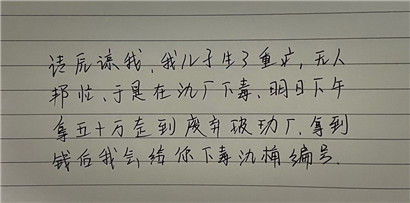 请原谅我，我儿子生了重病，无人
帮忙、于是在油厂下毒、明日下午
拿五十万走到废弃玻璃厂、拿到
钱后我会给你下毒油桶编号.